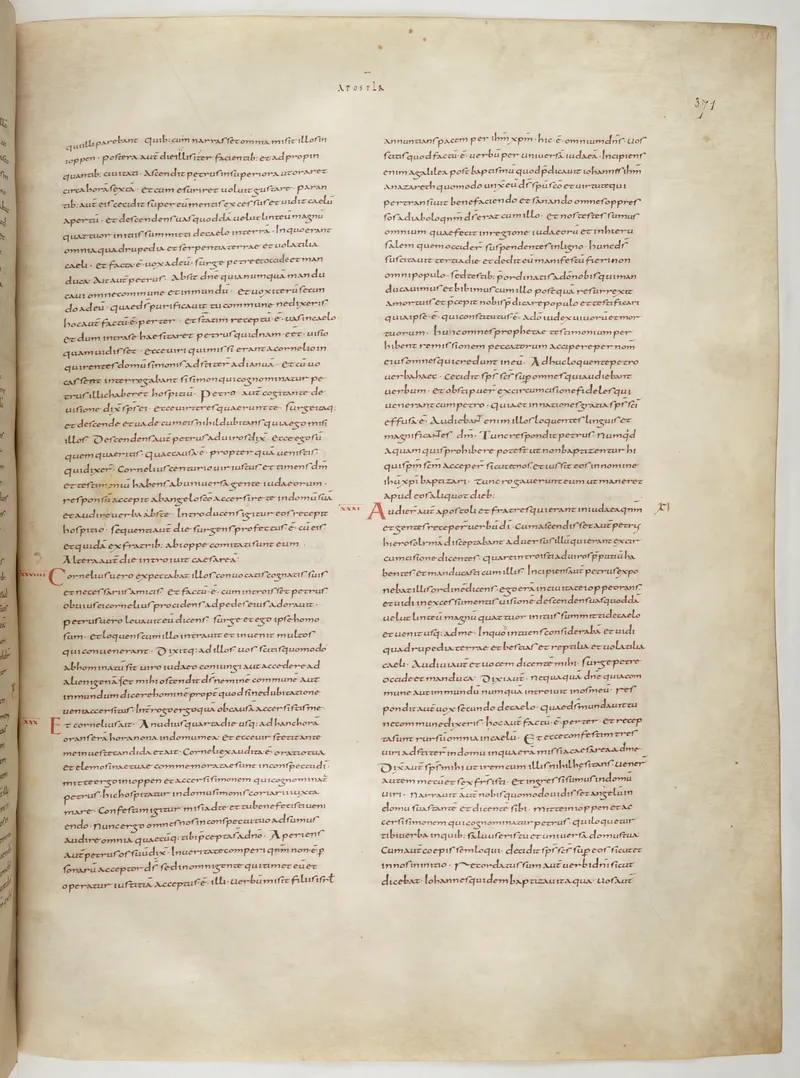 APOSTL̄A
371
qui illi parebant · quib; cum narrasset omnia misit illos in
ioppen · postera aut̄ die illis iter facientib; et adpropin
quantib; ciuitati · Ascendit petrus in superiora ut oraret
circa horā sextā · Et cum esuriret uoluit gustare · paran
tib; aut̄ eis cecidit super eū mentis excessus et uidit caelū
apertū · Et descendens uas quoddā uelut linteū magnū
quattuor initiis summitti de caelo in terrā · In quo erant
omnia quadrupedia et serpentia terrae et uolatilia
caeli · Et facta ē uox ad eū · surge petre et occide et man
duca · Ait aut̄ petrus · Absit dn̄e quia numquā mandu
caui omne commune et inmundū · Et uox iterū secun
do ad eū · quae ds̄ purificauit tu commune ne dixeris
hoc aut̄ factū ē per ter · et statim receptū ē uas in caelo
et dum intra se haesitaret petrus quidnam eēt uisio
quam uidisset · Ecce uiri qui missi erant a cornelio in
quirentes domū simonis adstiter̄ ad ianuā · Et cū uo
cassent interrogabant si simon qui cognominatur pe
trus illic haberet hospitiū · Petro aut̄ cogitante de
uisione dix̄ sp̄s ei · Ecce uiri tres quaerunt te · surge itaq;
et descende et uade cum eis nihil dubitans quia ego misi
illos · Descendens aut̄ petrus ad uiros dix̄ · Ecce ego sū
quem quaeritis · quae causa ē propter quā uenistis ·
qui dixer̄ · Cornelius centurio uir iustus et timens dm̄
et testimoniū habens ab uniuersa gente iudaeorum ·
responsū accepit ab angelo sc̄o accersire te in domū suā
et audire uerba abs te · Introducens igitur eos recepit
hospitio · Sequenti aut̄ die surgens profectus ē cū eis
et quidā ex fratrib; ab ioppe comitati sunt eum ·
Altera aut̄ die introiuit caesarea
Cornelius uero expectabat illos conuocatis cognatis suis
et necessariis amicis · Et factū ē cum introisset petrus
obuius ei cornelius procidens ad pedes eius adorauit ·
petrus uero leuauit eū dicens · Surge et ego ipse homo
sum · Et loquens cum illo intrauit et inuenit multos
qui conuenerant · Dixitq; ad illos · uos scitis quomodo
abhominatū sit uiro iudaeo coniungi aut accedere ad
alienigenā · set mihi ostendit ds̄ neminē commune aut
inmundum dicere hominē propt̄ quod sine dubitatione
ueni accersitus · Interrogo ergo quā ob causā accersistis me ·
xxx
Et cornelius ait · A nudius quarta die usq; ad hanc horā
orans erā hora nona in domu mea · Et ecce uir stetit ante
me in ueste candida et ait · Corneli exaudita ē oratio tua
et elemosinae tuae commemoratae sunt in conspectu dī
mitte ergo in ioppen et accersi simonem qui cognominat̄
petrus · hic hospitatur in domu simonis coriarii iuxta
mare · Confestim igitur misi ad te et tu bene fecisti ueni
endo · Nunc ergo omnes nos in conspectu tuo adsumus
audire omnia quaecūq; tibi p̄cepta s̄ a dn̄o · Aperiens
aut̄ petrus os suū dix̄ · In ueritate comperi qm̄ non ē p̄
sonarū acceptor ds̄ · sed in omni gente qui timet eū et
operatur iustitiā acceptus ē illi · uerbū misit filiis isrl̄
annuntians pacem per ih̄m xp̄m · hic ē omnium dn̄s · Uos
scitis quod factū ē uerbū per uniuersā iudaeā · Incipiens
enim a galilea post baptismū quod p̄dicauit iohannis ih̄m
a nazareth quomodo unxit eū ds̄ sp̄u sc̄o et uirtute qui
pertransiuit benefaciendo et sanando omnes oppres
sos a diabolo qm̄ ds̄ erat cum illo · Et nos testes sumus
omnium quae fecit in regione iudaeorū et in hieru
salem quem occider̄ suspendentes in ligno · hunc ds̄
suscitauit tertia die et dedit eū manifestū fieri non
omni populo · sed testib; p̄ordinatis a dō nobis qui man
ducauimus et bibimus cum illo postquā resurrexit
a mortuis et p̄cepit nobis p̄dicare populo et testificari
quia ipse ē qui constitutus ē a dō iudex uiuorū et mor
tuorum · huic omnes prophetae testimonium per
hibent remissionem peccatorum accipere per nom̄
eius omnes qui credunt in eū · Adhuc loquente petro
uerba haec · Cecidit sp̄s sc̄s sup̄ omnes qui audiebant
uerbum · Et obstipuer̄ ex circumcisione fideles qui
uenerant cum petro · quia et in nationes gratia sp̄s sc̄i
effusa ē · Audiebant enim illos loquentes linguis et
magnificantes dm̄ · Tunc respondit petrus · Numq̄d
aquam quis prohibere potest ut non baptizentur hi
qui sp̄m sc̄m acceper̄ sicut et nos · et iussit eos in nomine
ih̄u xp̄i baptizari · Tunc rogauerunt eum ut maneret
apud eos aliquot dieb:
xxxi
Audier̄ aut̄ apostoli et fratres qui erant in iudaea qm̄
et gentes receper̄ uerbū dī · Cum ascendisset aut̄ petrus
hierosolimā disceptabant aduersus illū qui erant ex cir
cumcisione dicentes · quare introisti ad uiros p̄putiū ha
bentes et manducasti cum illis · Incipiens aut̄ petrus expo
nebat illis ordinē dicens · ego erā in ciuitate ioppe orans
et uidi in excessu mentis uisionē descendens uas quoddā
uelut linteū magnū quattuor initiis summitti de caelo
et uenit usq; ad me · In quo intuens considerabā et uidi
quadrupedia terrae et bestias et reptilia et uolatilia
caeli · Audiui aut̄ et uocem dicentē mihi · Surge petre
occide et manduca · Dixi aut̄ · nequaquā dn̄e quia com
mune aut inmundū numquā introiuit in os meū · res
pondit aut̄ uox secundo de caelo · quae ds̄ mundauit tu
ne commune dixeris · hoc aut̄ factū ē per ter · et recep
ta sunt rursū omnia in caelū · Et ecce confestim tres
uiri adstiter̄ in domu in qua erā missi a caesarea ad me ·
Dixit aut̄ sp̄s mihi ut irem cum illis nihil hesitans uener̄
autem mecū et sex frs̄ isti · Et ingressi sumus in domū
uiri · Narrauit aut̄ nobis quomodo uidisset angelū in
domu sua stantē et dicentē sibi · mitte in ioppen et ac
cersi simonem qui cognominatur petrus qui loquetur
tibi uerba in quib; saluus eris tu et uniuersa domus tua
Cum aut̄ coepissem loqui · decidit sp̄s sc̄s sup̄ eos sicut et
in nos in initio · Recordatus sum aut̄ uerbi dn̄i sicut
dicebat · Iohannes quidem baptizauit aqua · uos aut̄
xi